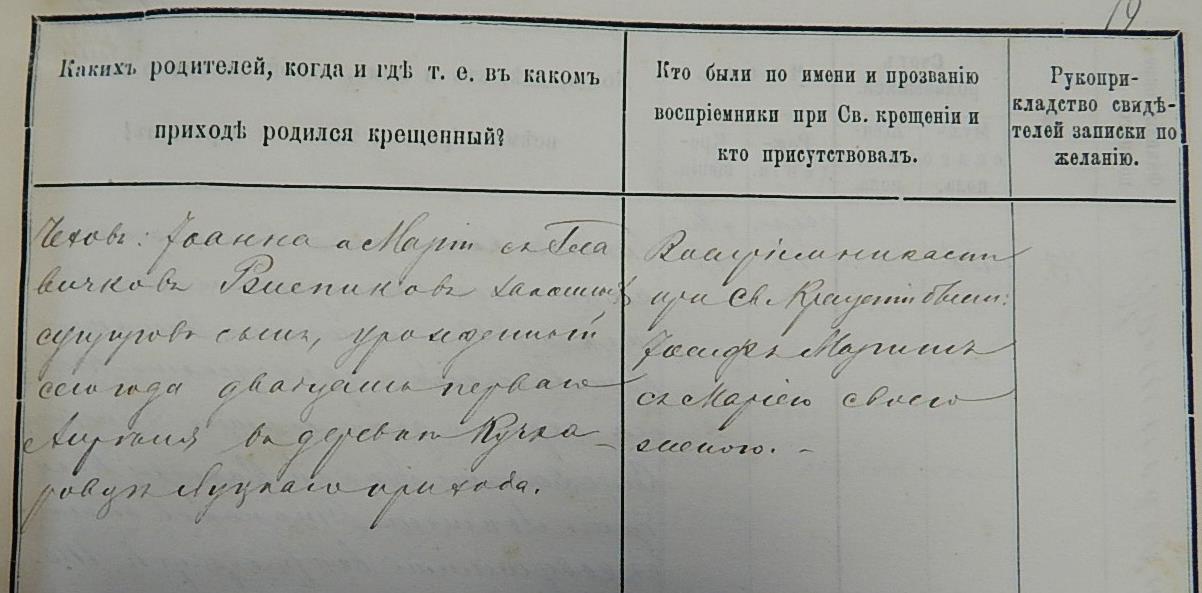 19
Какихъ родителей, когда и гдѣ т. е. въ каком
приходѣ родился крещенный?
Кто были по имени и прозванію
воспріемники при Св. крещеніи и
кто присутствовалъ.
Рукопри-
кладство свидѣ-
телей записки по
желанію.
Чеховъ: Іоанна и Маріи съ
супруговъ сынъ, урожденный
сего года двадцать перваго
Апрѣля въ деревнѣ
Луцкаго прихода.
Воспріемниками
при Св. Крещеніи были:
Іосифъ
съ Маріею своею
женою. –